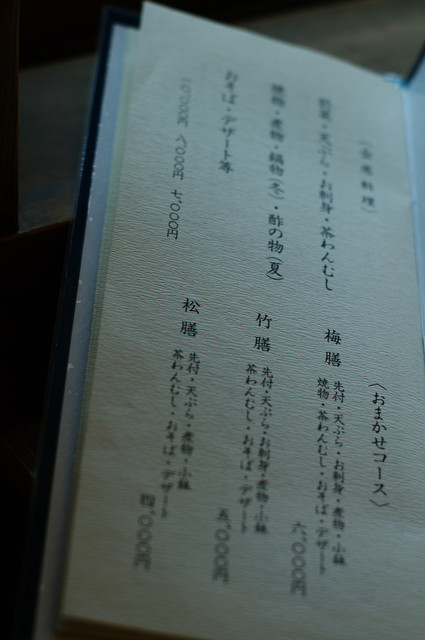 〈会席料理〉
前菜・天ぷら・お刺身・茶わんむし
焼物・煮物・鍋物(冬)・酢の物(夏)
おそば・デザート等
一〇、〇〇〇円 八、〇〇〇円 七、〇〇〇円
〈おまかせコース〉
梅膳 先付・天ぷら・お刺身・煮物・小鉢
焼物・茶わんむし・おそば・デザート
六、〇〇〇円
竹膳 先付・天ぷら・お刺身・煮物・小鉢
茶わんむし・おそば・デザート
五、〇〇〇円
松膳 先付・天ぷら・煮物・小鉢
茶わんむし・おそば・デザート
四、〇〇〇円